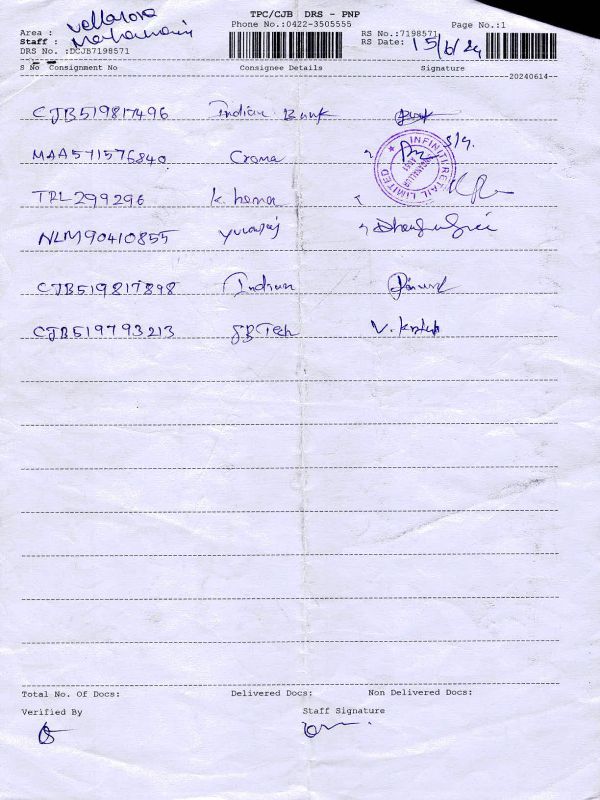 TPC/CJB DRS - PNP
Phone No.:0422-3505555
Page No.:1
Area :
Staff :
DRS No. :DCJB7198571
RS No.:7198571
RS Date: 15/6/24
S No Consignment No Consignee Details Signature
20240614
CJB519817496 Indian Bank
MAA571576840 Croma
INFINITI RETAIL LIMITED
TRL299296 K. hema
NLM90410855 yuvaraj
CJB519817898 Indian
CJB519793213 SB Tech
Total No. Of Docs: Delivered Docs: Non Delivered Docs:
Verified By Staff Signature